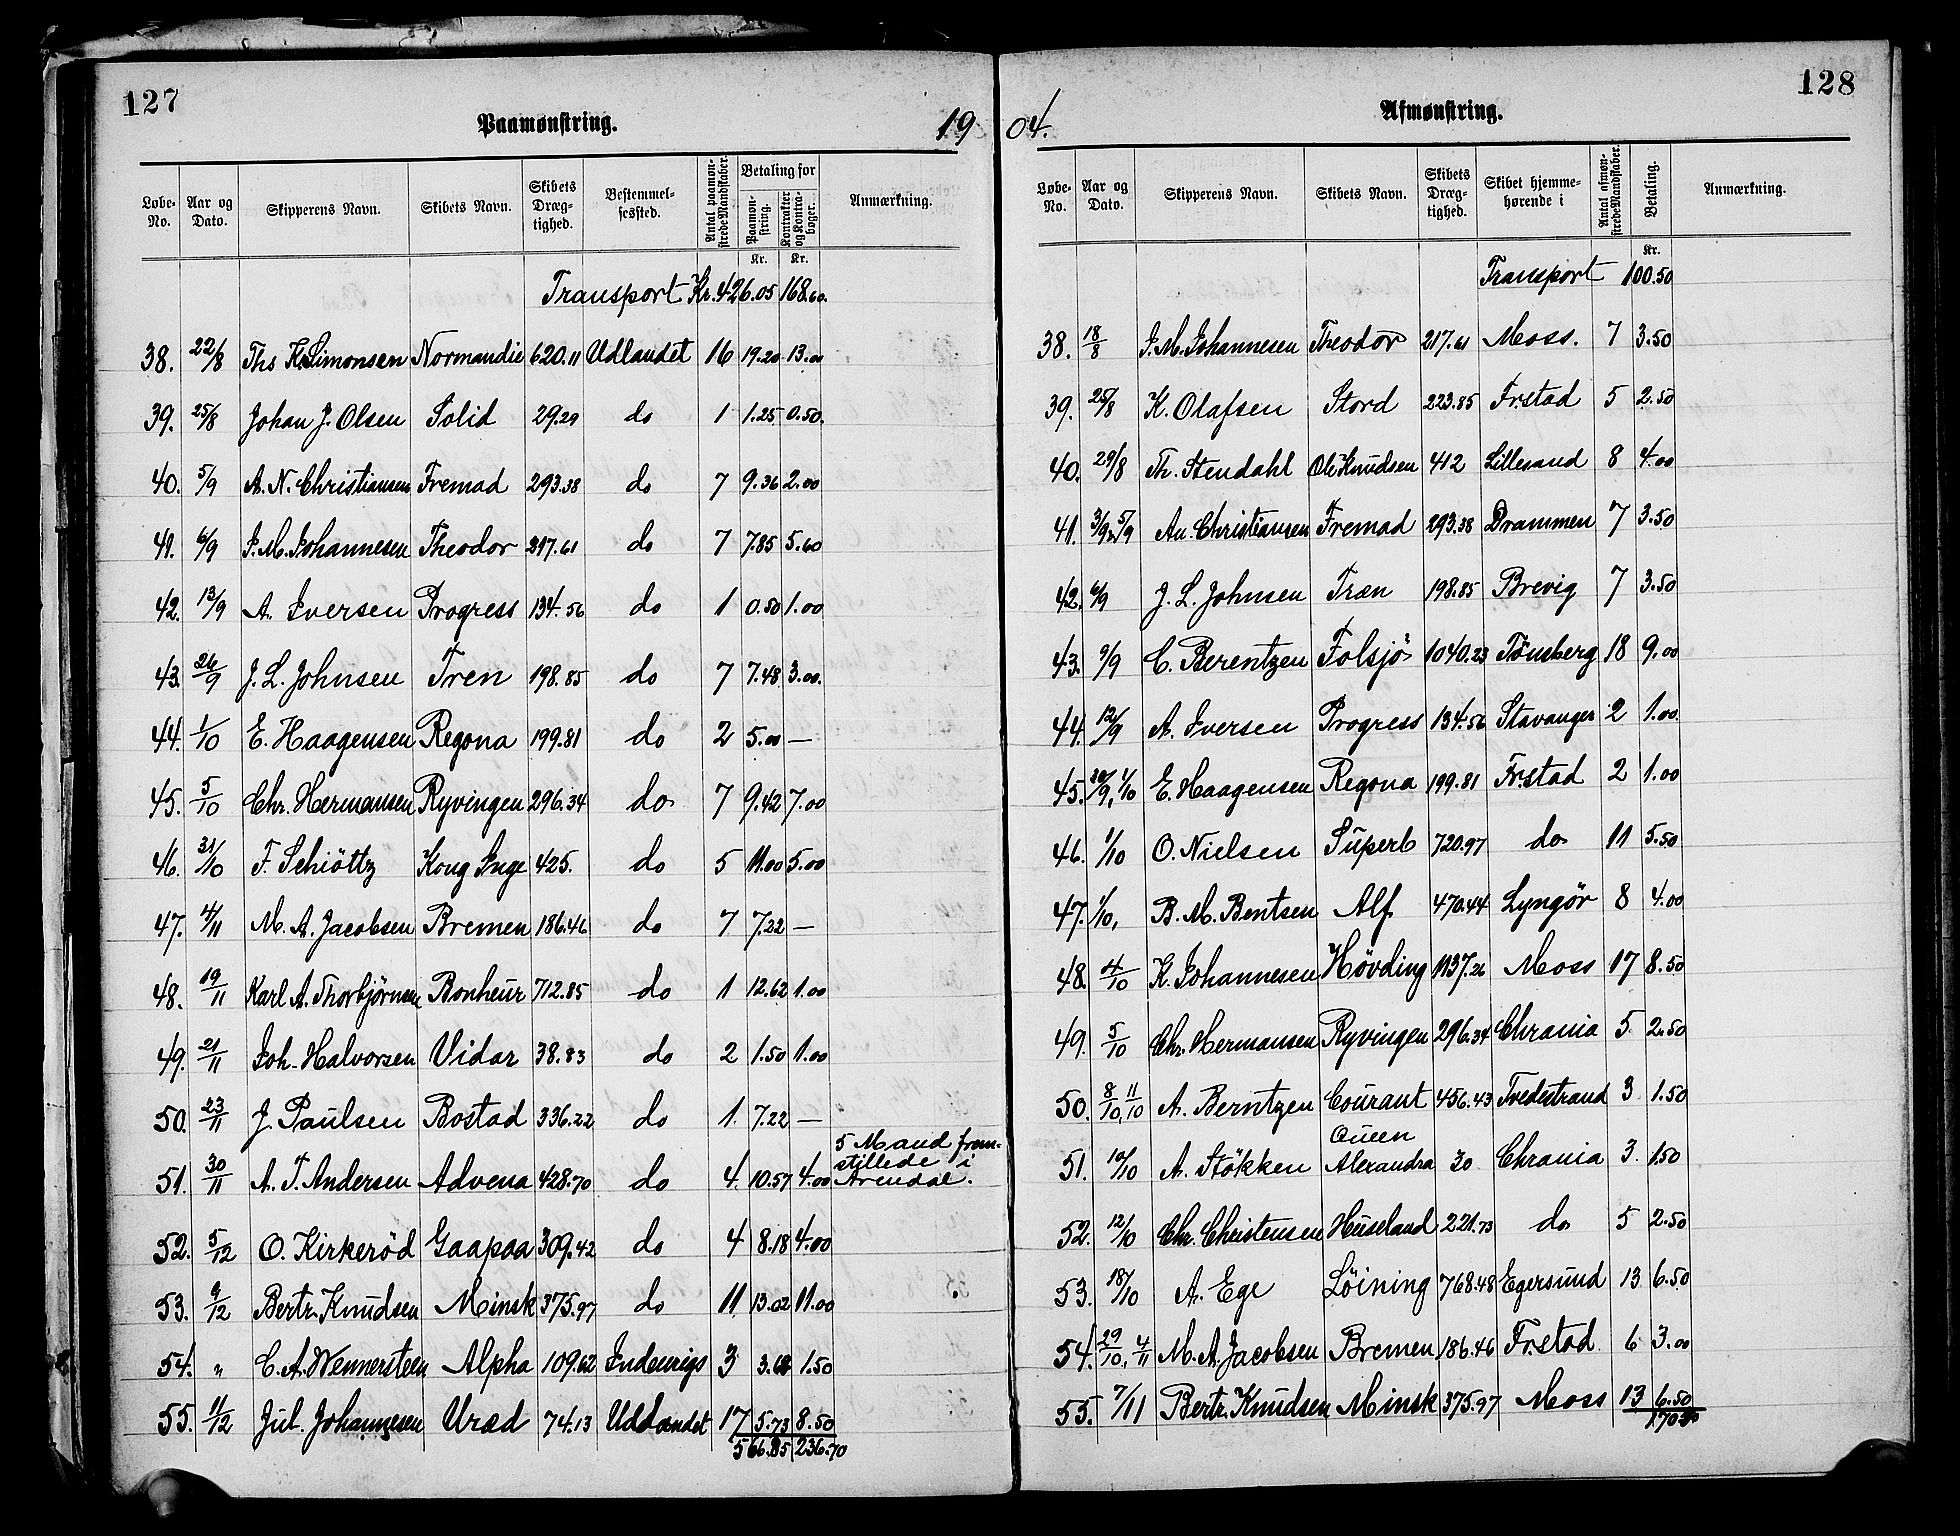 127
Paamønstring.
19
Løbe-No. Aar og Dato. Skipperens Navn. Skibets Navn. Skibets Dræg-tighed. Bestemmel-sessted. Antal paamøn-strede Mandskaber. Betaling for Paamøn-string. Kontrakter og Kontra-bøger. Anmærkning.
Kr. Kr.
Transport Kr. 426.05 168.60.
38. 22/8 Ths K. Simonsen Normandie 620.11 Udlandet 16 19.20 13.00
39. 25/8 Johan J. Olsen Solid 29.29 do 1 1.25 0.50.
40. 5/9 A. N. Christiansen Fremad 293.38 do 7 9.36 2.00
41. 6/9 J. M. Johannesen Theodor 217.61 do 7 7.85 5.60
42. 13/9 A. Iversen Progress 134.56 do 1 0.50 1.00
43. 26/9 J. L. Johnsen Tren 198.85 do 7 7.48 3.00.
44. 1/10 E. Haagensen Regona 199.81 do 2 5.00 —
45. 5/10 Chr. Hermansen Ryvingen 296.34 do 7 9.42 7.00
46. 31/10 F. Schiöttz Kong Inge 425. do 5 11.00 5.00
47. 4/11 M. A. Jacobsen Bremen 186.46 do 7 7.22 —
48. 19/11 Karl A. Thorbjørnsen Bonheur 712.85 do 1 12.62 1.00
49. 21/11 Joh. Halvorsen Vidar 38.83 do 2 1.50 1.00
50. 23/11 J. Paulsen Bostad 336.22 do 1. 7.22 —
51. 30/11 A. T. Andersen Advena 428.70 do 4. 10.57 4.00 5 Mand frem-stillede i Arendal.
52. 5/12 O. Kirkerød Gaapaa 309.42 do 4 8.18 4.00
53. 9/12 Bertr. Knudsen Minsk 375.97 do 11 13.02 11.00
54. " C. A. Wennersteen Alpha 109.62 Indenrigs 3 3.68 1.50
55. 11/12 Jul. Johannesen Uræd 74.13 Udlandet 17 5.73 8.50
566.85 236.70
128
Afmønstring.
04.
Løbe-No. Aar og Dato. Skipperens Navn. Skibets Navn. Skibets Dræg-tighed. Skibet hjemme-hørende i Antal afmøn-strede Mandskaber. Betaling. Anmærkning.
Kr.
Transport 100.50
38. 18/8 J. M. Johannesen Theodor 217.61 Moss. 7 3.50
39. 25/8 K. Olafsen Stord 223.85 Fr.stad 5 2.50
40. 29/8 Th. Stendahl Ole Knudsen 412 Lillesand 8 4.00
41. 3/9 5/9 An. Christiansen Fremad 293.38 Drammen 7 3.50
42. 6/9 J. L. Johnsen Træn 198.85 Brevig 7 3.50
43. 9/9 C. Berentzen Folsjö 1040.23 Tönsberg 18 9.00
44. 12/9 A. Iversen Progress 134.56 Stavanger 2 1.00
45. 30/9, 1/10 E. Haagensen Regona 199.81 Fr.stad 2 1.00
46. 1/10 O. Nielsen Superb 720.97 do 11 5.50
47. 1/10, B. M. Bentsen Alf 470.44 Lyngör 8 4.00
48. 4/10 K. Johannesen Hövding 1137.26 Moss 17 8.50
49. 5/10 Chr. Hermansen Ryvingen 296.34 Chrania 5 2.50
50. 8/10, 11/10 A. Berntzen Courant 456.43 Tvedestrand 3 1.50
51. 10/10 A. Stökken Queen Alexandra 30 Chrania 3. 1.50
52. 12/10 Chr. Christensen Huseland 221.73 do 5 2.50
53. 18/10 A. Ege Löining 768.48 Egersund 13 6.50
54. 29/10, 4/11 M. A. Jacobsen Bremen 186.46 Fr.stad 6 3.00
55. 7/11 Bertr. Knudsen Minsk 375.97 Moss 13 6.50